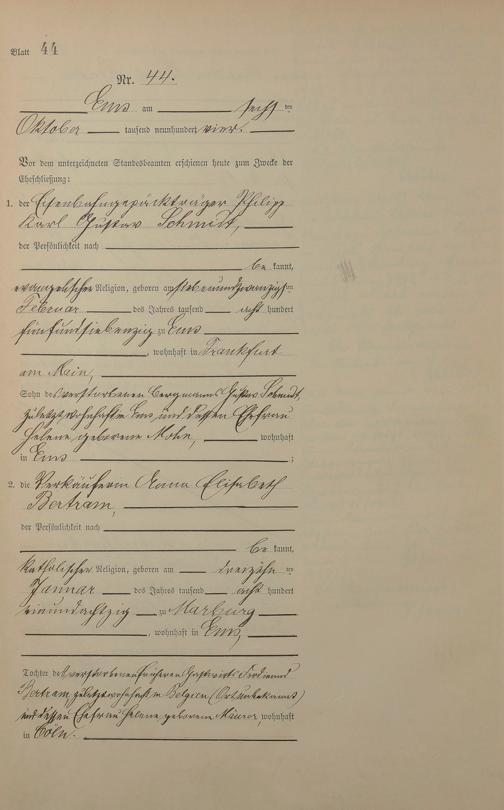 Blatt 44
Nr. 44.
Ems am sechsten
Oktober tausend neunhundert vier.
Vor dem unterzeichneten Standesbeamten erschienen heute zum Zwecke der
Eheschließung:
1. der Eisenbahngepäckträger Philipp
Karl Gustav Schmidt,
der Persönlichkeit nach
be kannt,
evangelischer Religion, geboren am siebenundzwanzigsten
Februar des Jahres tausend acht hundert
fünfundsiebenzig zu Ems
, wohnhaft in Frankfurt
am Main,
Sohn des verstorbenen Bergmanns Gustav Schmidt,
zuletzt wohnhaft in Ems, und dessen Ehefrau
Helene, geborene Mohn, wohnhaft
in Ems ;
2. die Verkäuferin Anna Elisabeth
Bertram,
der Persönlichkeit nach
be kannt,
katholischer Religion, geboren am dreizehnten
Januar des Jahres tausend acht hundert
einundachtzig zu Marburg
, wohnhaft in Ems,
Tochter des verstorbenen früheren Gastwirts Ferdinand
Bertram, zuletzt wohnhaft in Belgien (Ort unbekannt)
und dessen Ehefrau Helene geborene Maurer, wohnhaft
in Cöln.